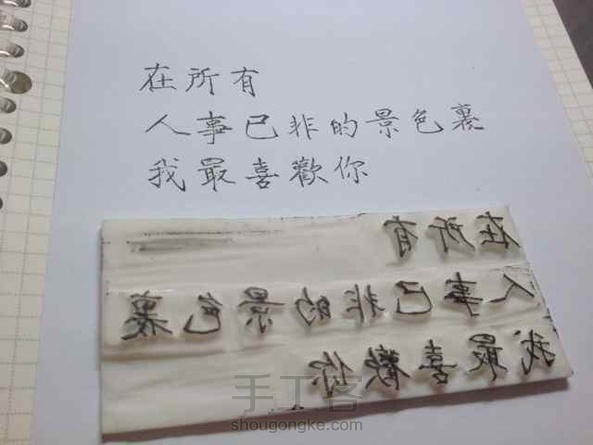 在所有
人事已非的景色裏
我最喜歡你
在所有
人事已非的景色裏
我最喜歡你
手工客
shougongke.com